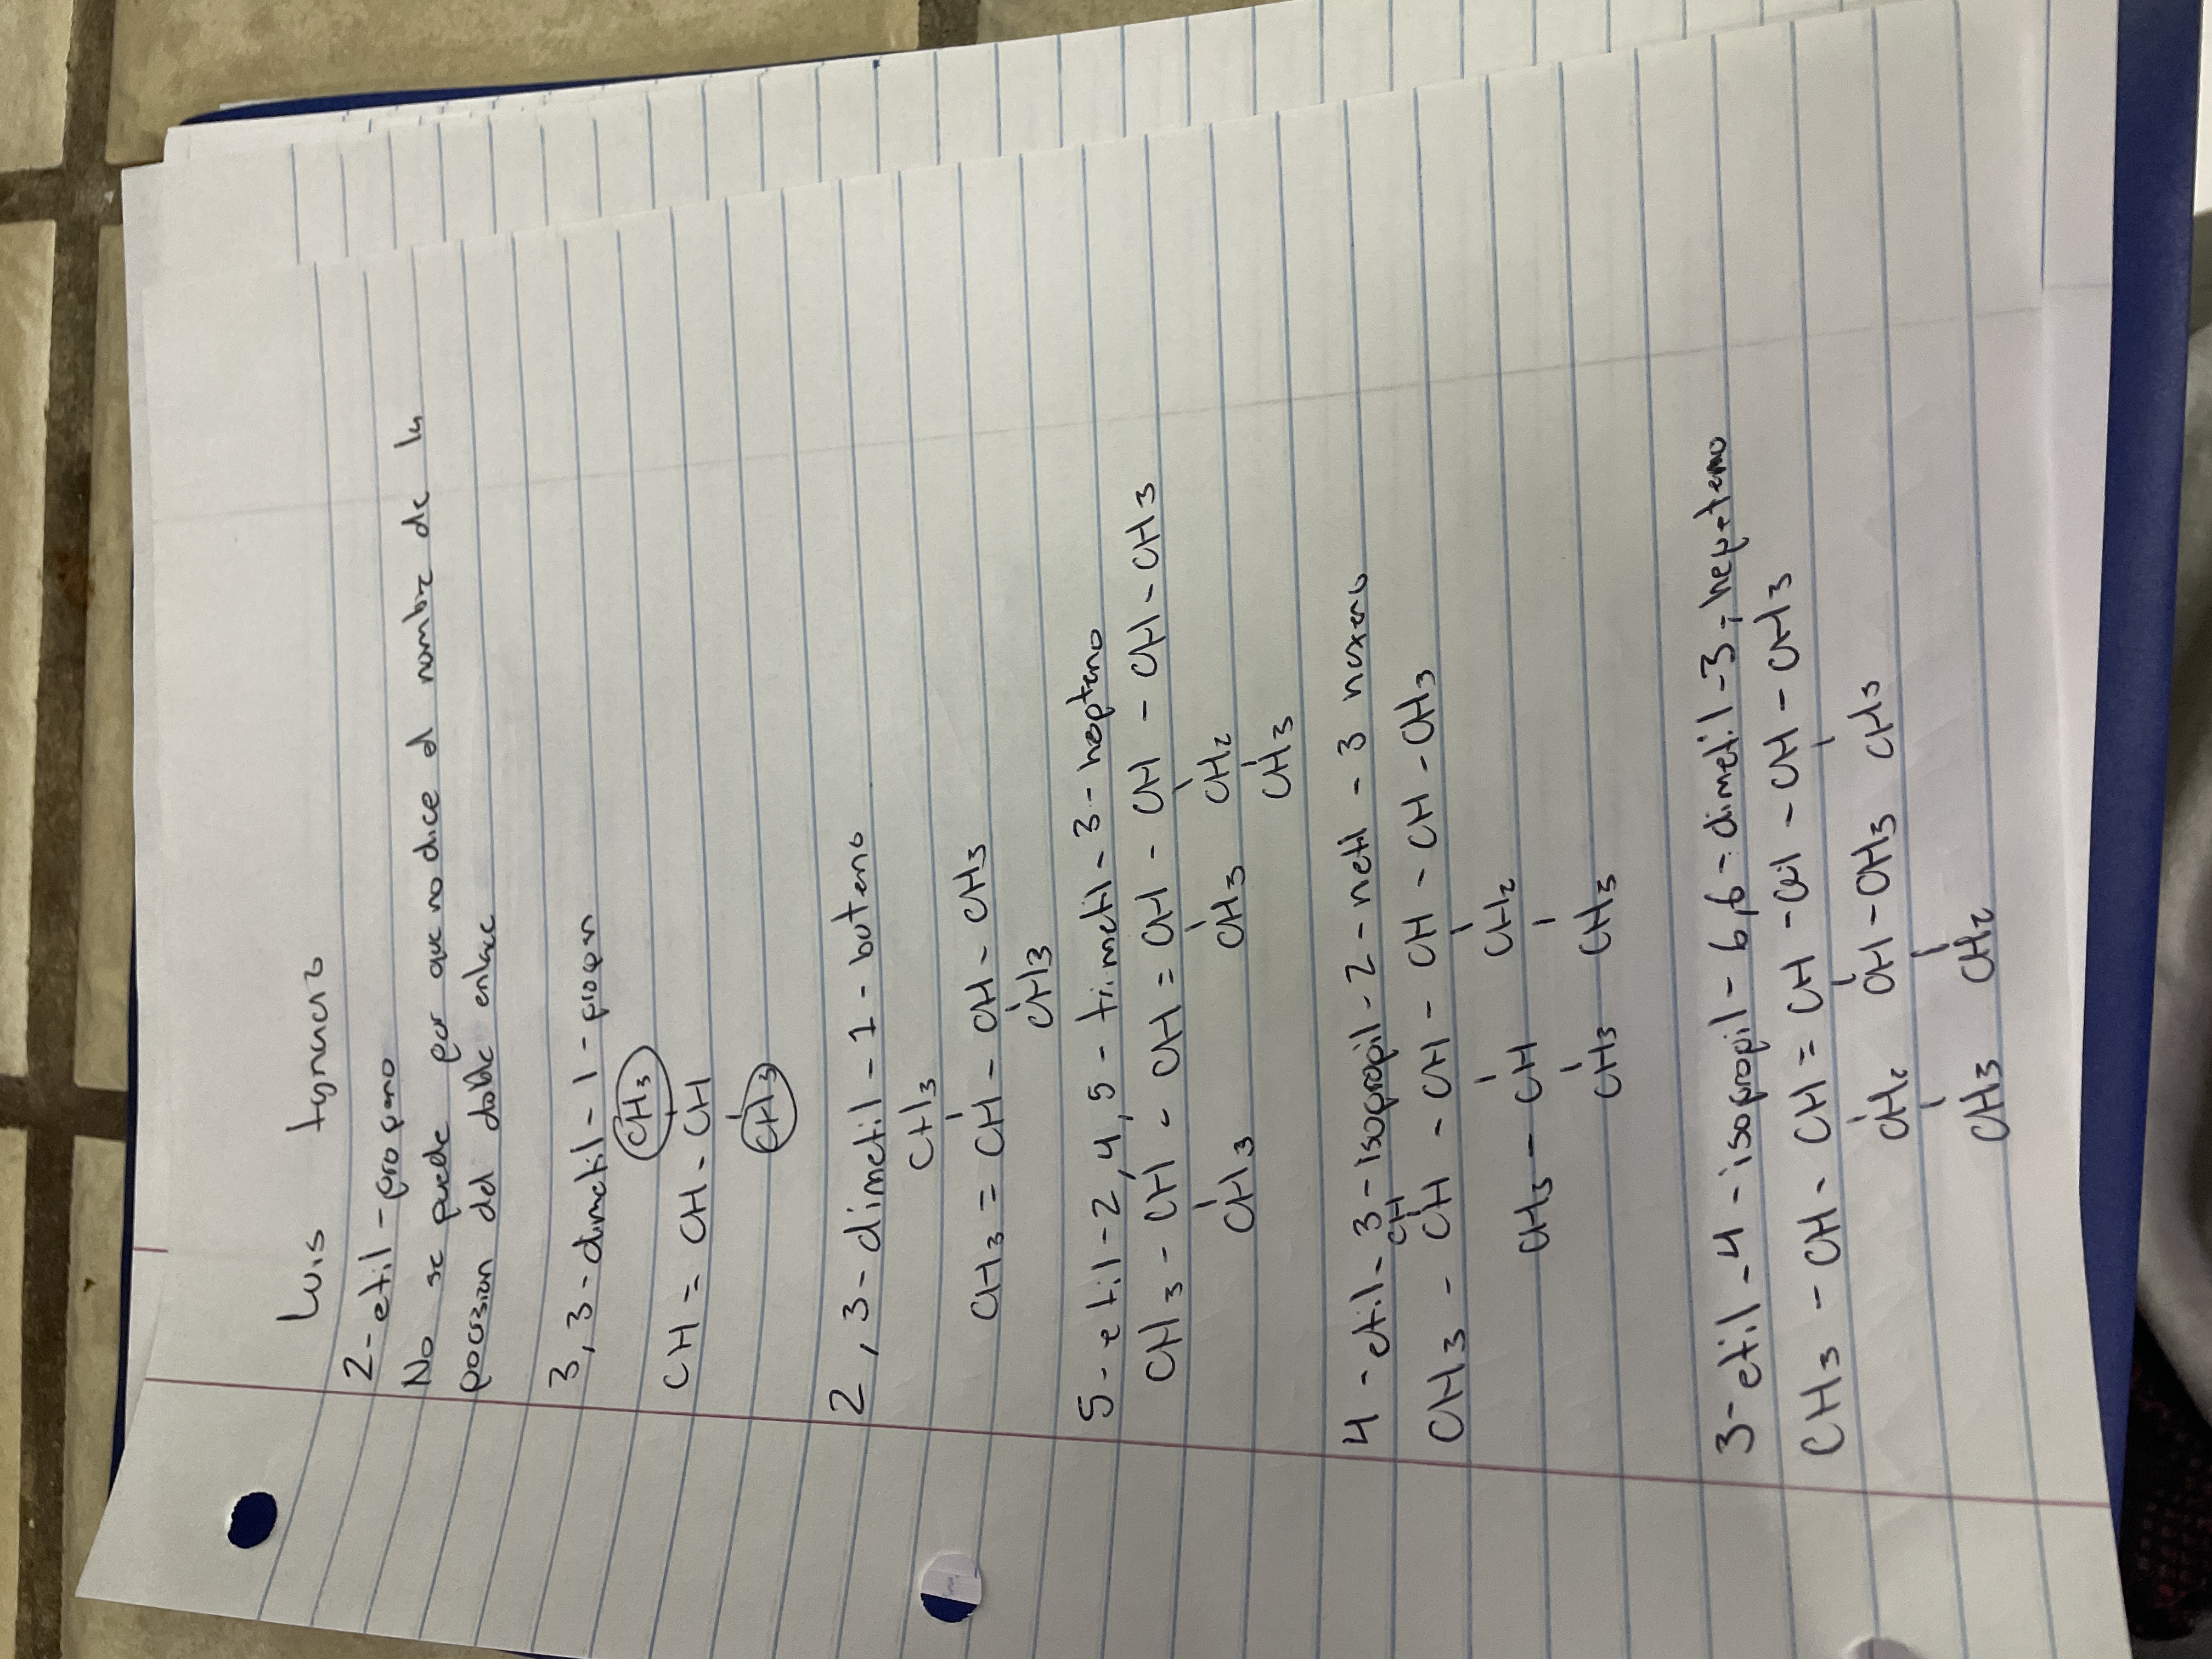 Luis Ignacio
2-etil-propano
No se puede por que no dice el nombre de la
posczion del doble enlace
3,3-dimetil-1-propen
CH3
CH = CH - CH
CH3
2,3-dimetil-1-buteno
CH3
CH3 = CH - CH - CH3
CH3
5-etil-2,4,5-trimetil-3-hepteno
CH3 - CH - CH = CH - CH - CH - CH3
CH3 CH3 CH2
CH3
4-etil-3-isopropil-2-metil-3 hexeno
CH
CH3 - CH - CH - CH - CH - CH3
CH3 - CH CH2
CH3 CH3
3-etil-4-isopropil-6,6-dimetil-3-hepteno
CH3 - CH - CH = CH - CH - CH - CH3
CH2 CH - CH3 CH3
CH3 CH2